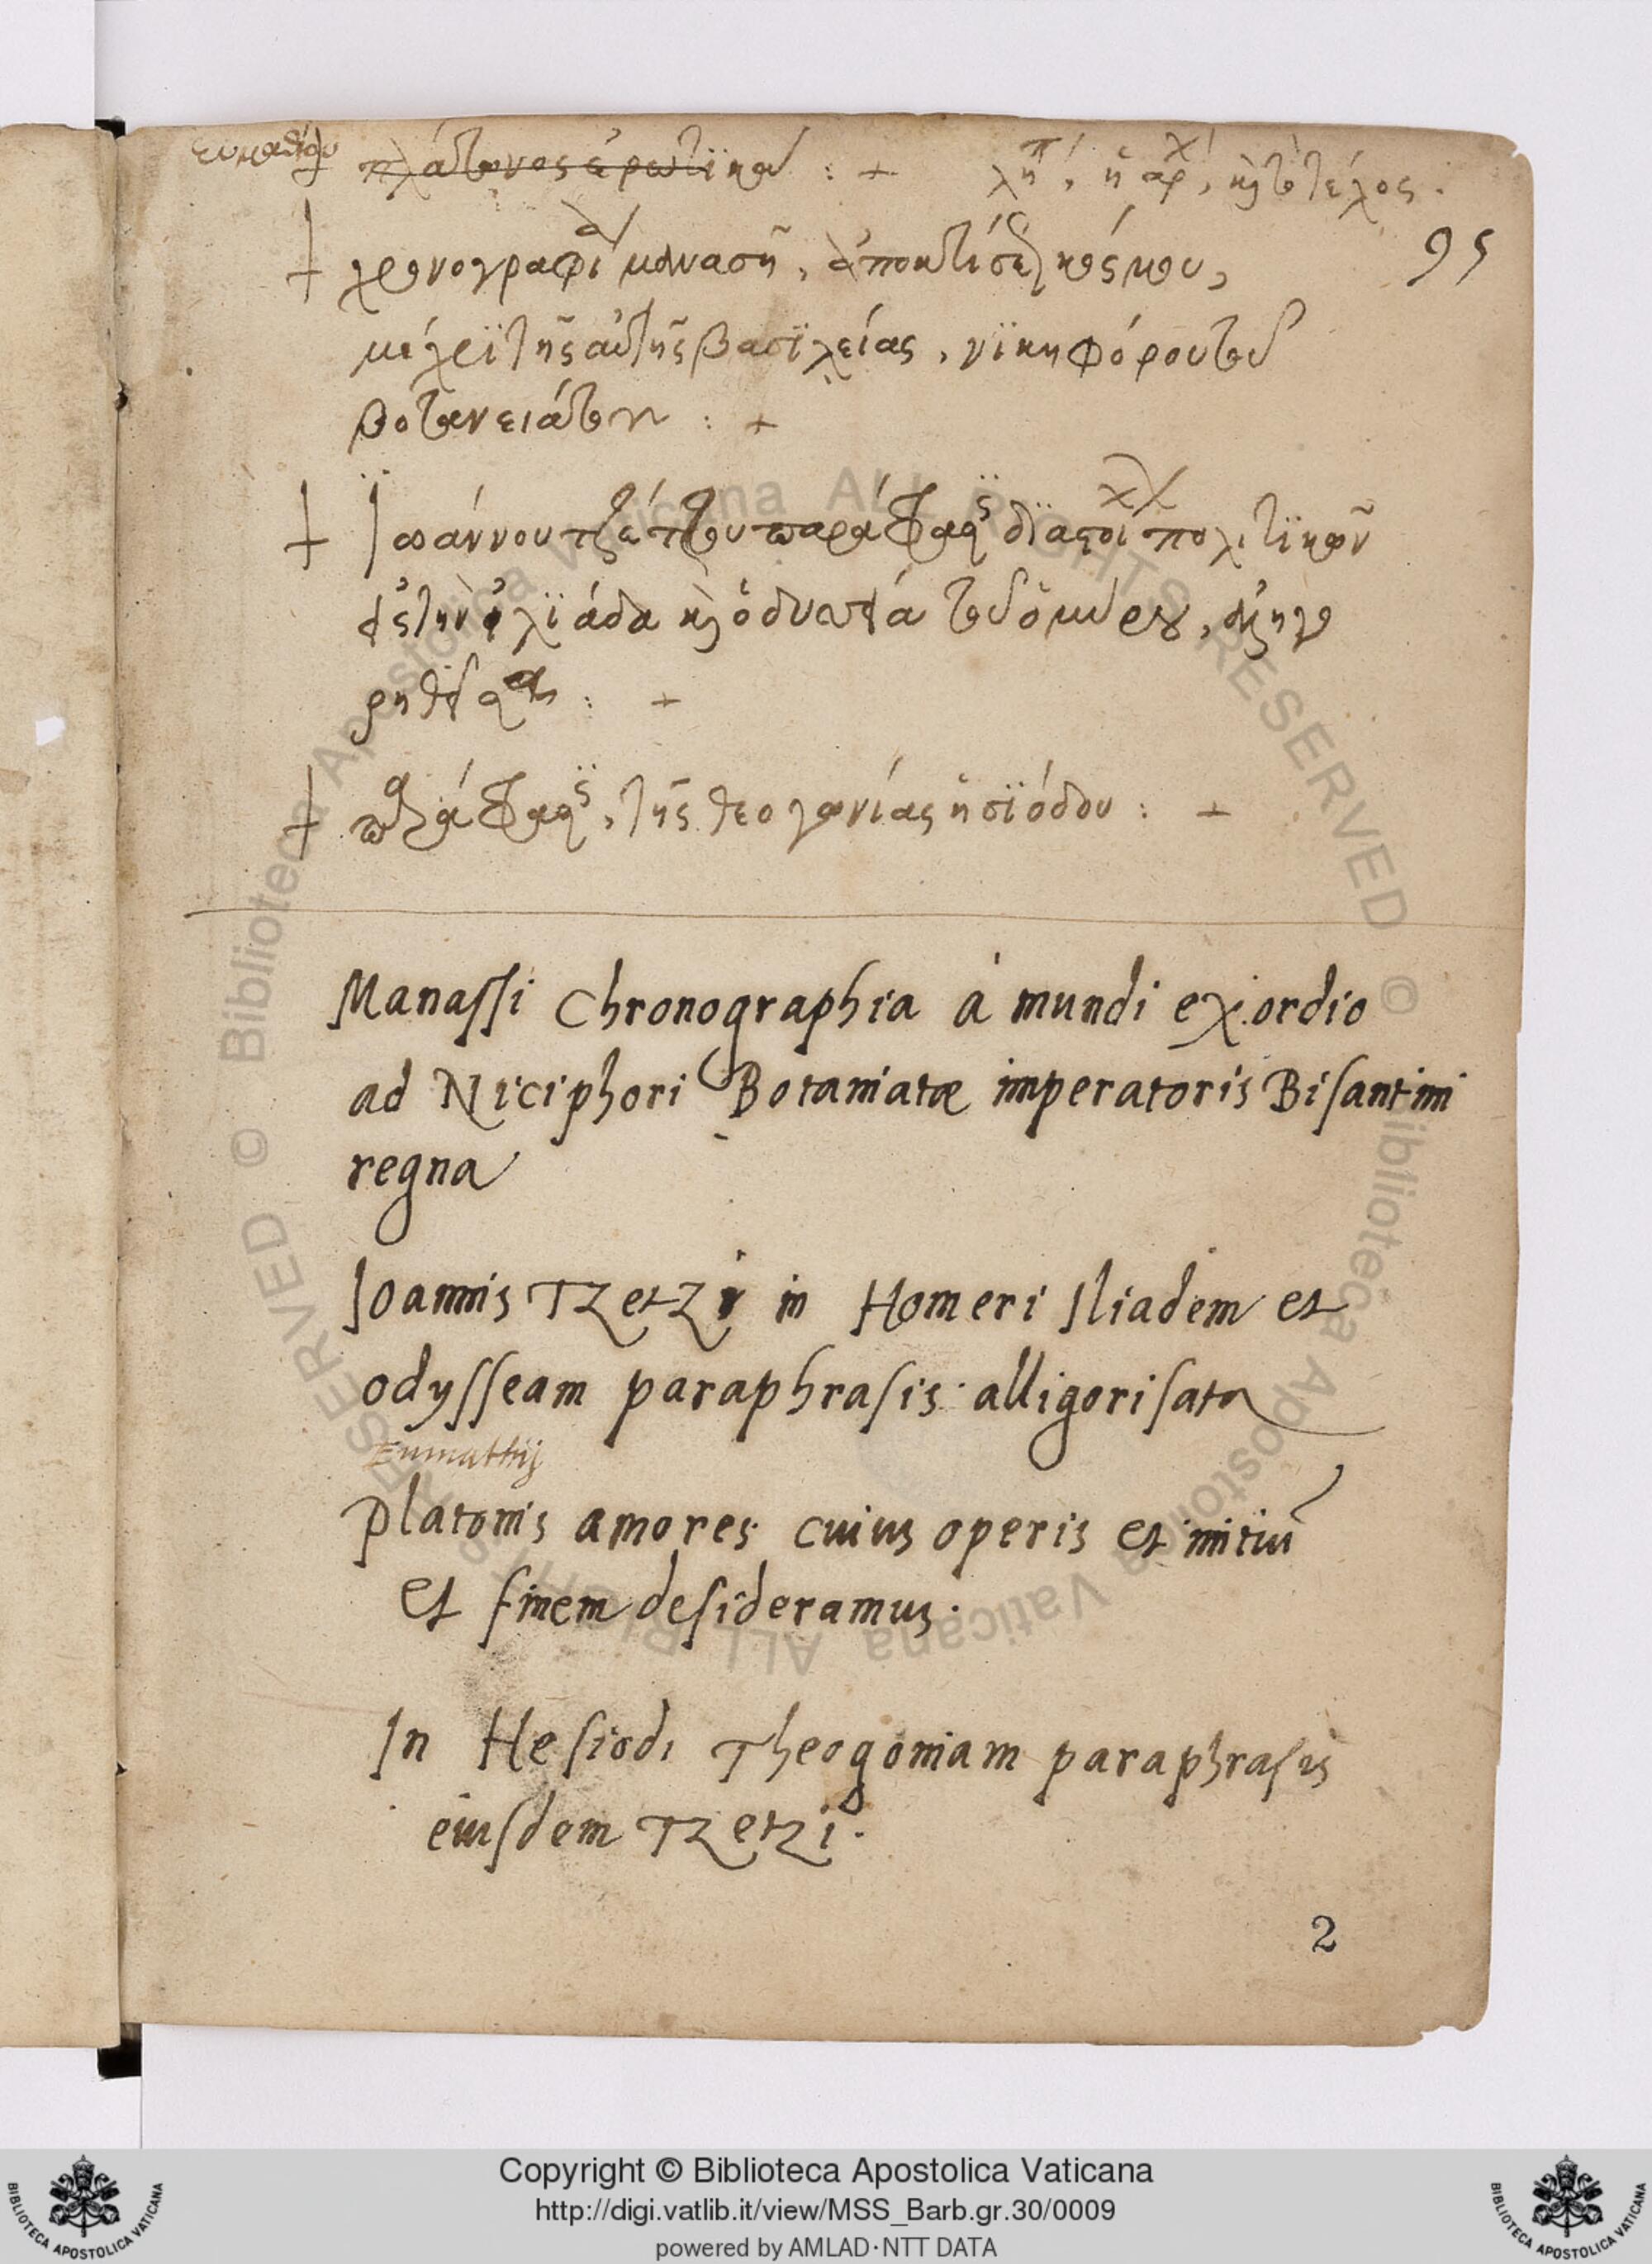 ευμαθίου πλάτωνος ἐρωτϊκα : + λπ, ἡ ἀρχ, κὶ τὸ τέλος.
+ χρονογραφία μανασῆ, ἀπο κτίσεως κόσμου, 95
μέχρϊ τῆς αὐτῆς βασϊλείας, νϊκηφόρου τοῦ
βοτανειάτου : +
+ Ϊωάννου τζέτζου παράφρασϊς δϊα στίχ πολιτϊκῶν
εἰς τὴν ἰλϊάδα κὶ ὀδυσσέα τοῦ ὁμήρου, ἀλληγο
ρηθεῖσαι : +
+ παράφρασϊς, τῆς θεογονίας ἡσϊόδου : +
Manassi Chronographia à mundi exordio
ad Niciphori Botaniatæ imperatoris Bisantini
regna
Ioannis Tzetzi in Homeri Iliadem et
odysseam paraphrasis alligorisata
Eumathij
Platonis amores cuius operis et initiũ
et finem desideramus.
In Hesiodi Theogoniam paraphrasis
eiusdem Tzetzi.
2
© Biblioteca Apostolica Vaticana ALL RIGHTS RESERVED © Biblioteca Apostolica Vaticana ALL RIGHTS RESERVED
Copyright © Biblioteca Apostolica Vaticana
http://digi.vatlib.it/view/MSS_Barb.gr.30/0009
powered by AMLAD·NTT DATA
BIBLIOTECA APOSTOLICA VATICANA
BIBLIOTECA APOSTOLICA VATICANA